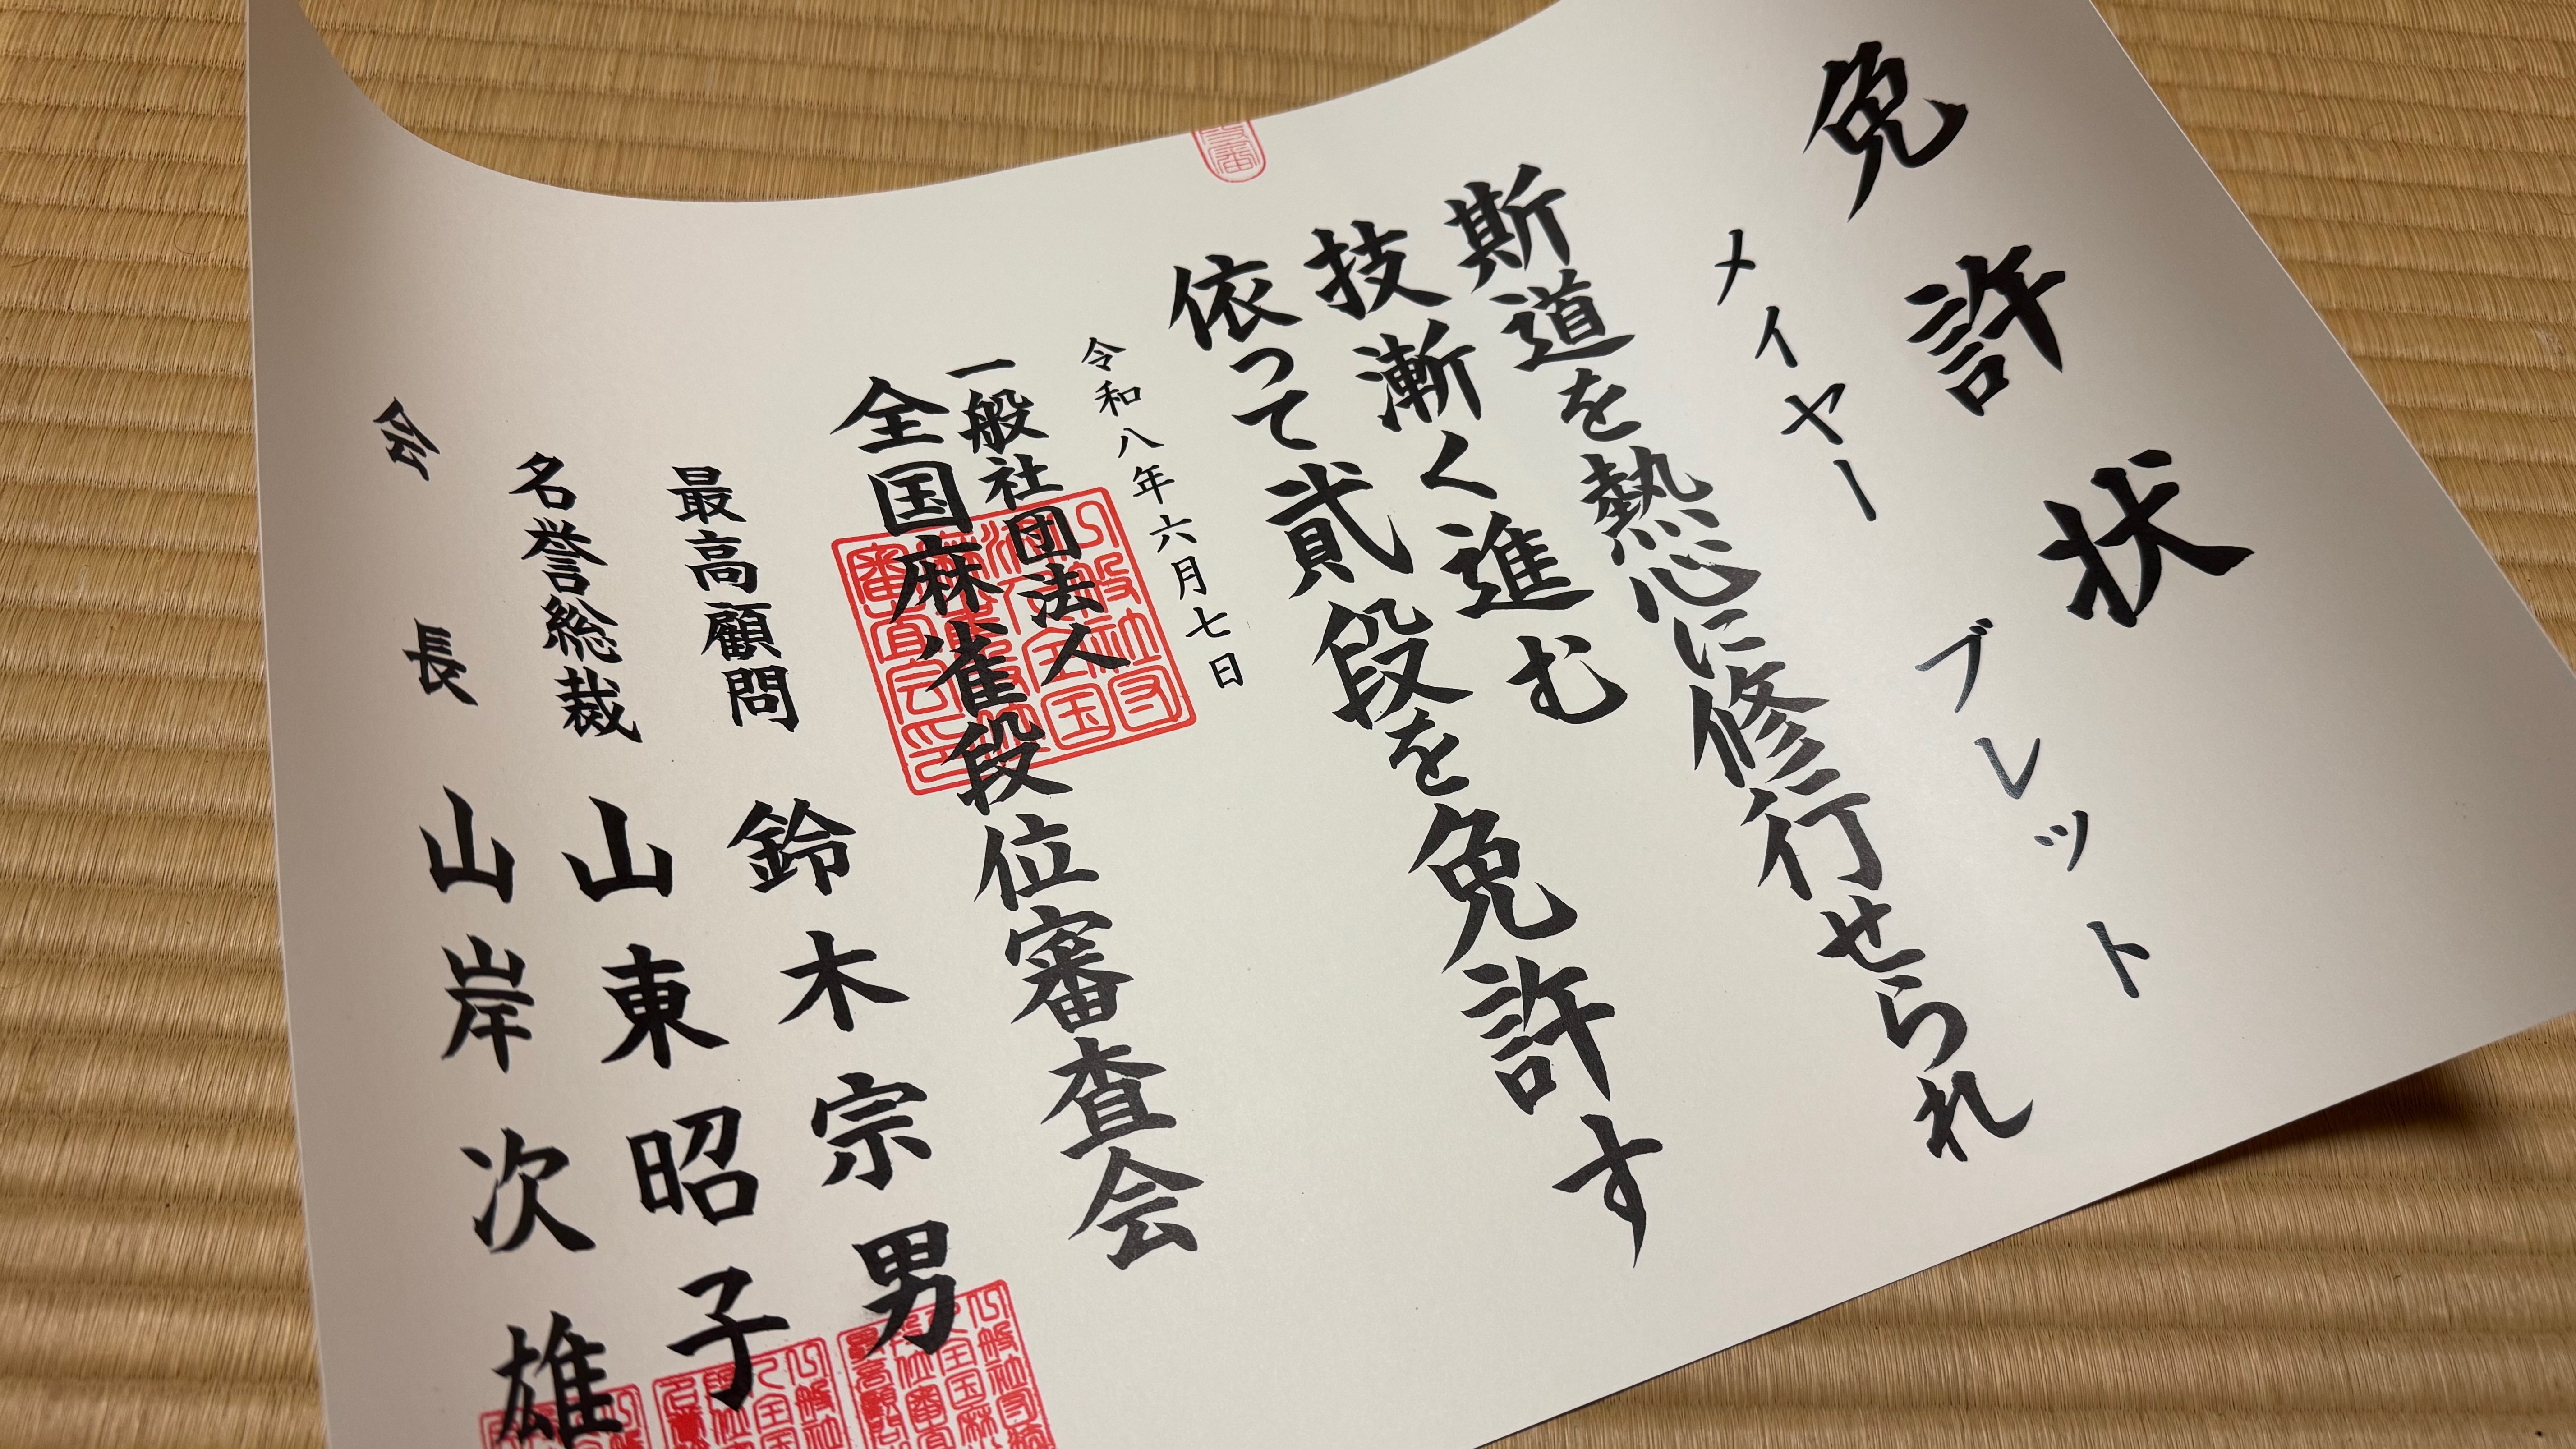 免許状
メイヤー ブレット
斯道を熱心に修行せられ
技漸く進む
依って貳段を免許す
令和八年六月七日
一般社団法人
全国麻雀段位審査会
最高顧問 鈴木宗男
名誉総裁 山東昭子
会長 山岸次雄